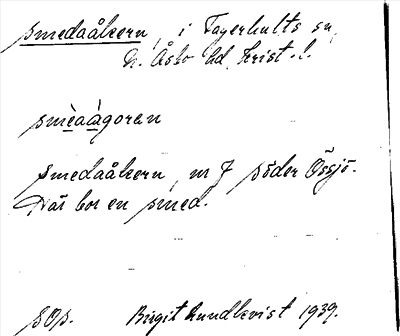 smedaåkern, i Fagerhults sn,
N. Åsbo hd, Krist. l.
smèaàgoren
smedaåkern, nr 7 söder Össjö.
Där bor en smed.
sOs. Birgit Lundkvist 1939.